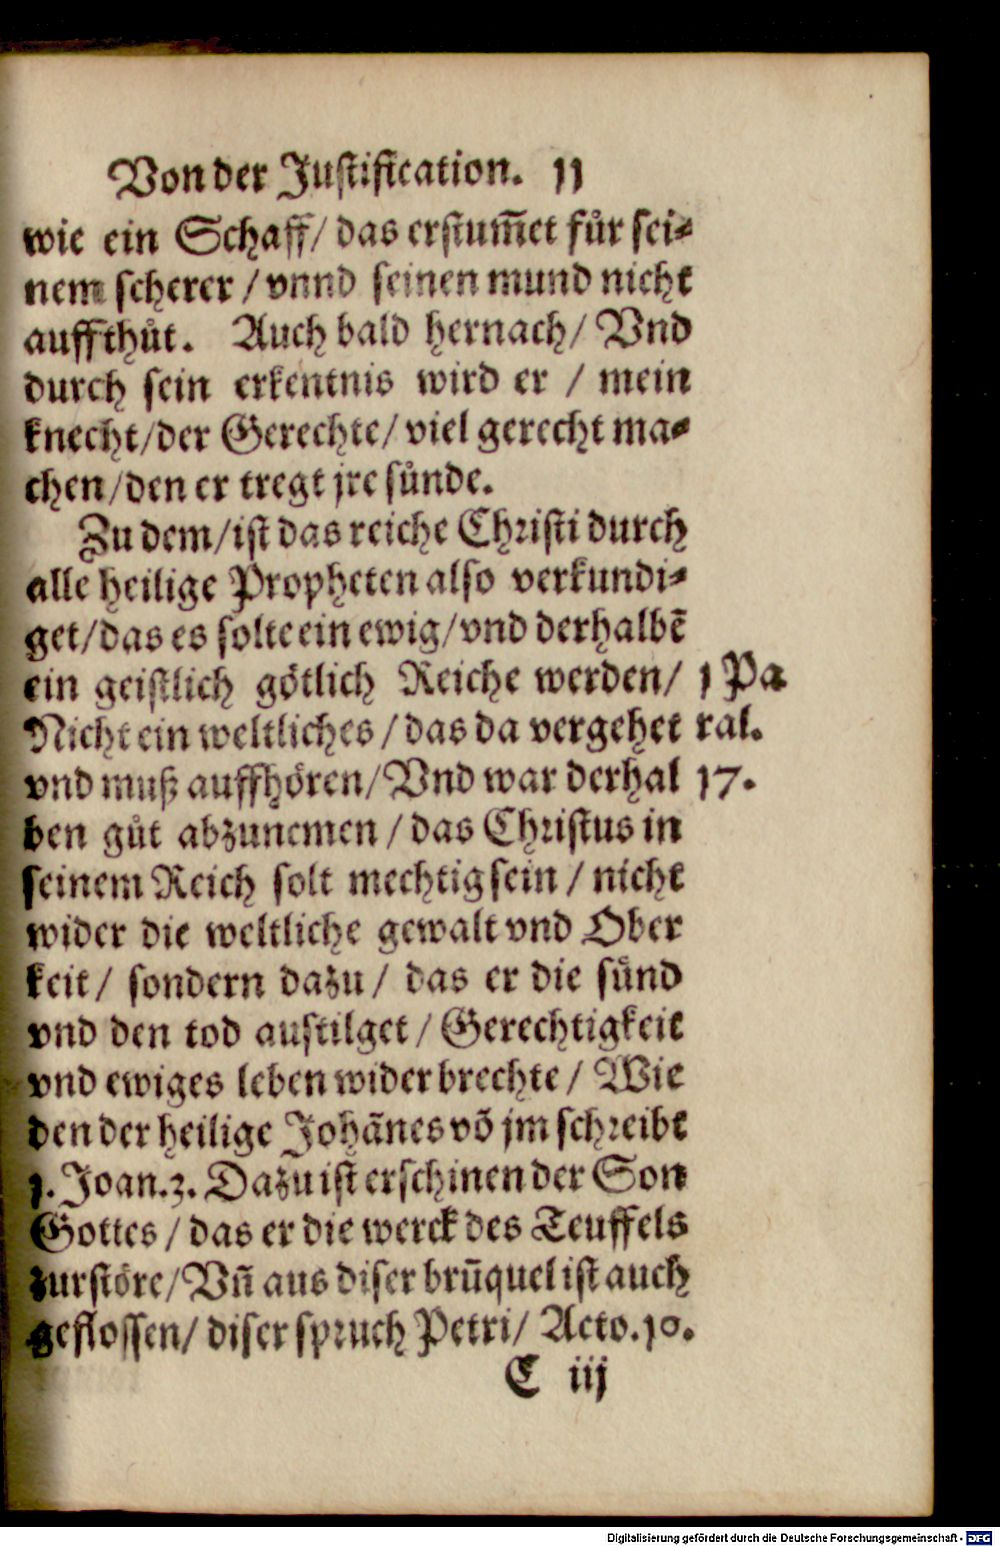 Von der Justification. 11
wie ein Schaff/ das erstum̅et fu̔r sei⸗
nem scherer / vnnd seinen mund nicht
auffthůt. Auch bald hernach/ Vnd
durch sein erkentnis wird er / mein
knecht/der Gerechte/ viel gerecht ma⸗
chen/den er tregt jre sůnde.
Zu dem/ist das reiche Christi durch
alle heilige Propheten also verkundi⸗
get/das es solte ein ewig/vnd derhalbē
ein geistlich götlich Reiche werden/
Nicht ein weltliches / das da vergehet
vnd muß auffhören/Vnd war derhal
ben gůt abzunemen / das Christus in
seinem Reich solt mechtig sein / nicht
wider die weltliche gewalt vnd Ober
keit/ sondern dazu/ das er die sůnd
vnd den tod austilget / Gerechtigkeit
vnd ewiges leben wider brechte / Wie
den der heilige Johānes vō jm schreibt
1. Joan.3. Dazu ist erschinen der Son
Gottes / das er die werck des Teuffels
zurstöre/Vn̄ aus diser brūquel ist auch
geflossen/ diser spruch Petri/ Acto.10.
C iij
1 Pa
ral.
17.
Digitalisierung gefördert durch die Deutsche Forschungsgemeinschaft - DFG